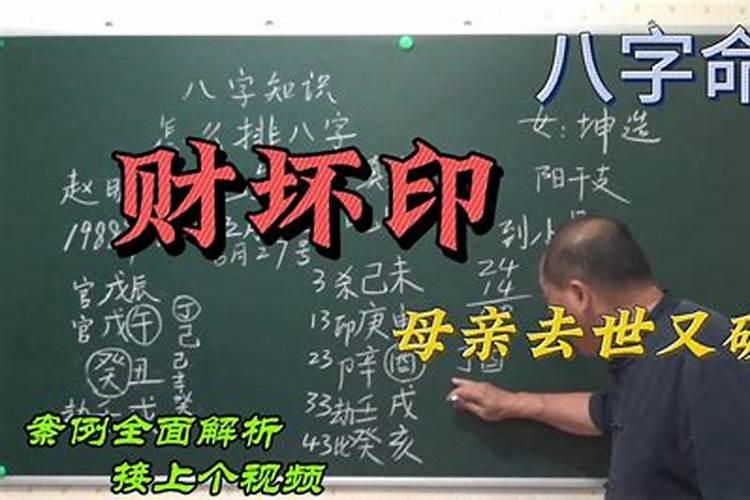 八字命
八字知识
怎么排八字
女:坤造
财坏印
阳干支
1988
6月27号
官戊辰
官戊午
癸丑
丁
己
己
辛
癸
3杀己未
13印庚申
23卩辛酉
33劫壬戌
43比癸亥
24
14
母亲去世又
案例全面解析
接上个视频